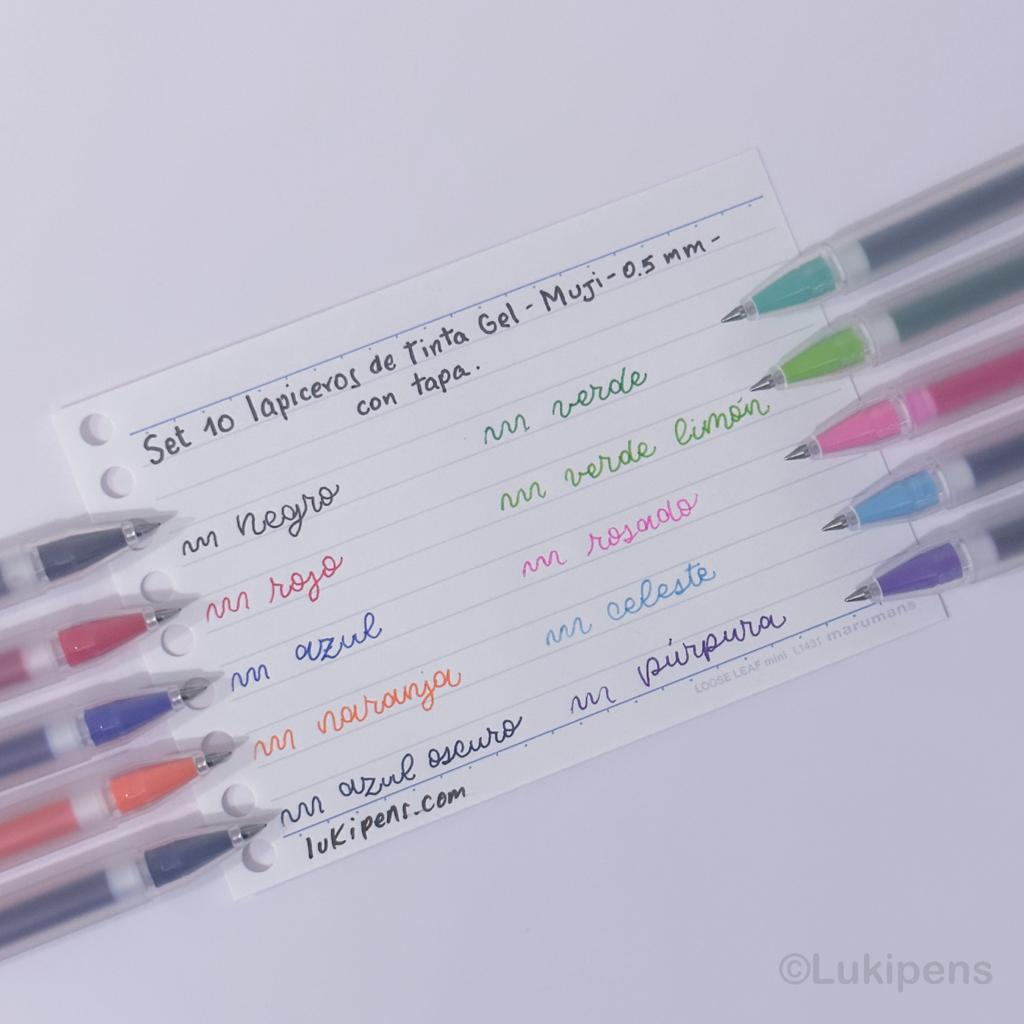 Set 10 lapiceros de Tinta Gel - Muji - 0.5 mm -
con tapa.
m negro
m rojo
m azul
m naranja
m azul oscuro
m verde
m verde limón
m rosado
m celeste
m púrpura
lukipens.com
LOOSE LEAF mini L1431 maruman®
©Lukipens